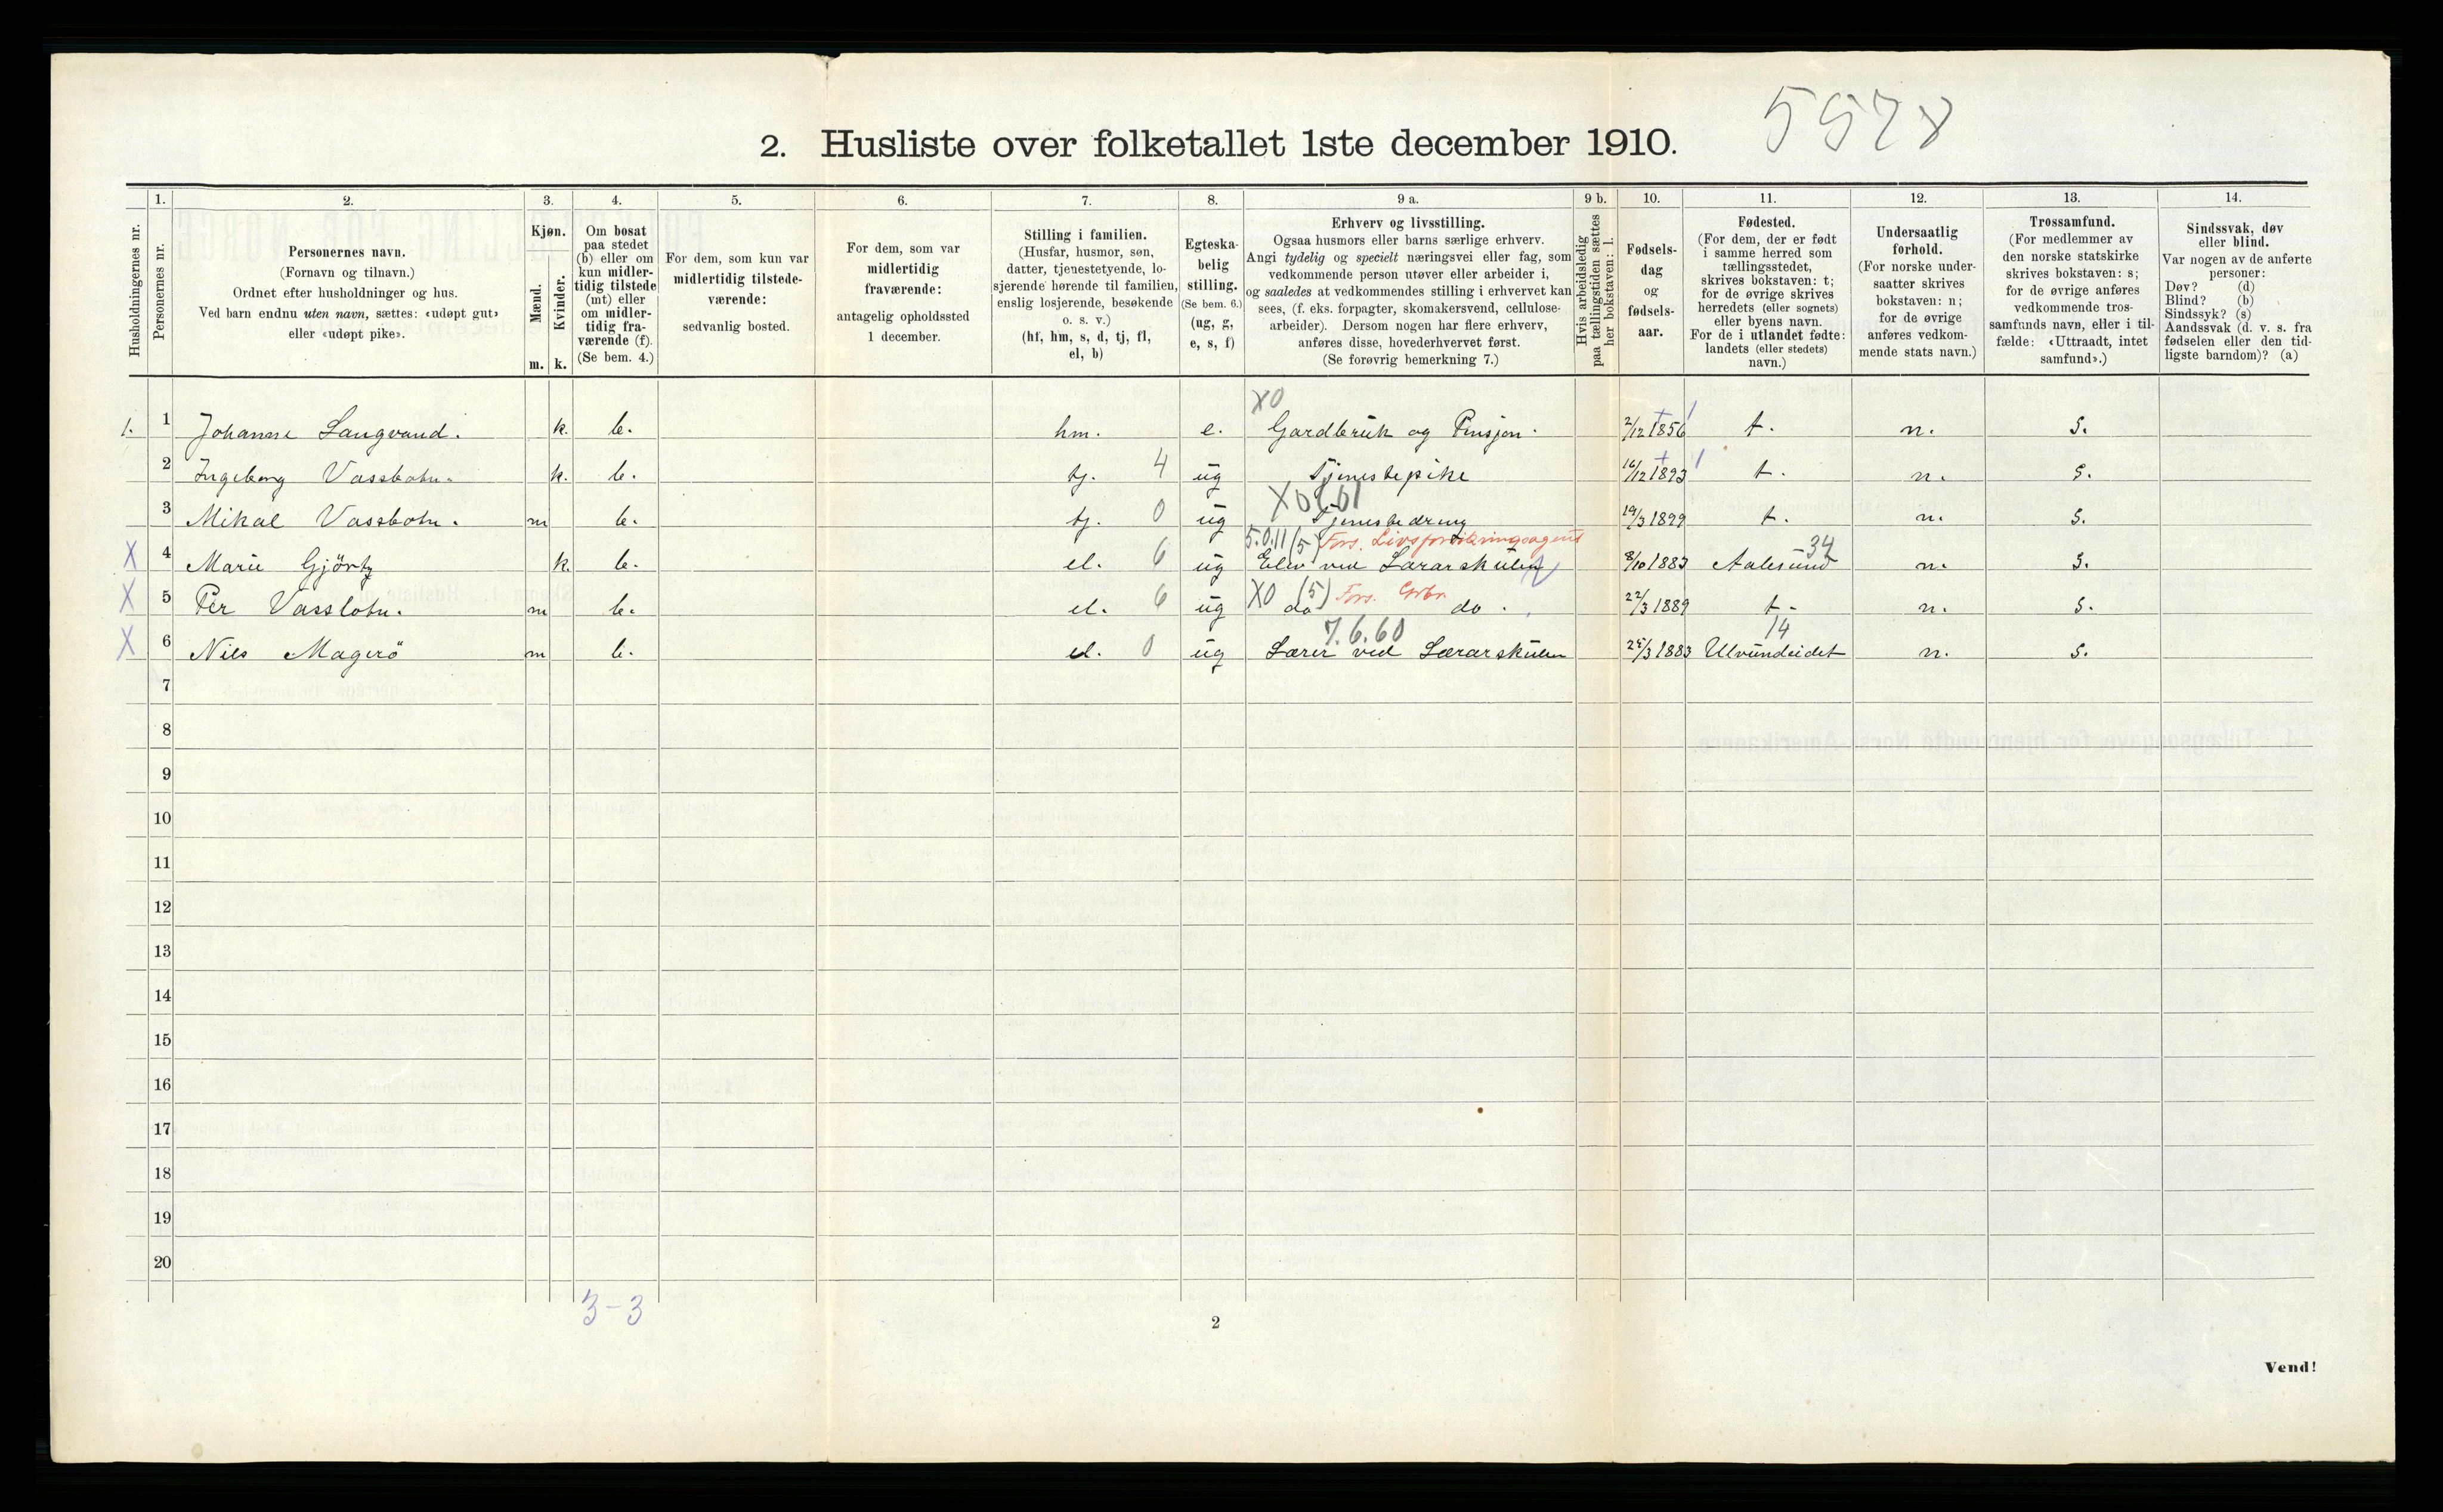 5578
2. Husliste over folketallet 1ste december 1910.
Husholdningernes nr.
1.
Personernes nr.
2.
Personernes navn.
(Fornavn og tilnavn.)
Ordnet efter husholdninger og hus.
Ved barn endnu uten navn, sættes: «udøpt gut»
eller «udøpt pike».
3.
Kjøn.
Mænd. Kvinder.
m. k.
4.
Om bosat
paa stedet
(b) eller om
kun midler-
tidig tilstede
(mt) eller
om midler-
tidig fra-
værende (f).
(Se bem. 4.)
5.
For dem, som kun var
midlertidig tilstede-
værende:
sedvanlig bosted.
6.
For dem, som var
midlertidig
fraværende:
antagelig opholdssted
1 december.
7.
Stilling i familien.
(Husfar, husmor, søn,
datter, tjenestetyende, lo-
sjerende hørende til familien,
enslig losjerende, besøkende
o. s. v.)
(hf, hm, s, d, tj, fl,
el, b)
8.
Egteska-
belig
stilling.
(Se bem. 6.)
(ug, g,
e, s, f)
9 a.
Erhverv og livsstilling.
Ogsaa husmors eller barns særlige erhverv.
Angi tydelig og specielt næringsvei eller fag, som
vedkommende person utøver eller arbeider i,
og saaledes at vedkommendes stilling i erhvervet kan
sees, (f. eks. forpagter, skomakersvend, cellulose-
arbeider). Dersom nogen har flere erhverv,
anføres disse, hovederhvervet først.
(Se forøvrig bemerkning 7.)
9 b.
Hvis arbeidsledig
paa tællingstiden sættes
her bokstaven: l.
10.
Fødsels-
dag
og
fødsels-
aar.
11.
Fødested.
(For dem, der er født
i samme herred som
tællingsstedet,
skrives bokstaven: t;
for de øvrige skrives
herredets (eller sognets)
eller byens navn.
For de i utlandet fødte:
landets (eller stedets)
navn.)
12.
Undersaatlig
forhold.
(For norske under-
saatter skrives
bokstaven: n;
for de øvrige
anføres vedkom-
mende stats navn.)
13.
Trossamfund.
(For medlemmer av
den norske statskirke
skrives bokstaven: s;
for de øvrige anføres
vedkommende tros-
samfunds navn, eller i til-
fælde: «Uttraadt, intet
samfund».)
14.
Sindssvak, døv
eller blind.
Var nogen av de anførte
personer:
Døv? (d)
Blind? (b)
Sindssyk? (s)
Aandssvak (d. v. s. fra
fødselen eller den tid-
ligste barndom)? (a)
X0
1. 1 Johanne Langvand. k. b. hm. e. Gardbruk og Pensjon. 2/12 1856 t. n. s.
2 Ingeborg Vassbotn. k. b. tj. 4 ug Tjenestepike 16/12 1893 t. n. s.
X0
3 Mikal Vassbotn. m b. tj. 0 ug Tjenestedreng 19/3 1899 t. n. s.
5.0.11 (5) Fors. Livsforsikringsagent 34
X 4 Marie Gjörtz k. b. el. 6 ug Elev ved Lærarskulen 8/10 1883 Aalesund n. s.
X0 (5) Fors. Grbr.
X 5 Per Vassbotn. m b. el. 6 ug do do. 22/3 1889 t. n. s.
7.6.60 14
X 6 Nils Magerö m b. el. 0 ug Lærer ved Lærarskulen 25/3 1883 Ulvundeidet n. s.
7
8
9
10
11
12
13
14
15
16
17
18
19
20
3-3
2
Vend!